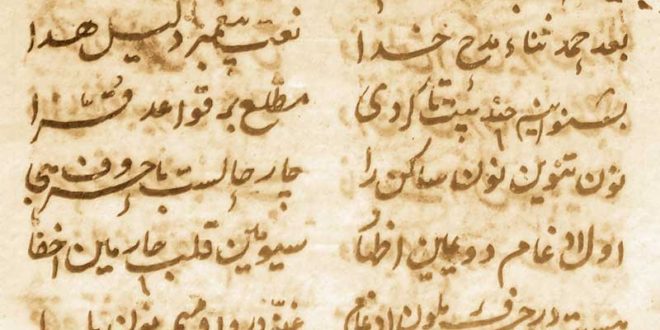 بعد حمد ثناء مدح خدا نعت پیغمبر دلیل هدا
بشنو این چند بیت تا کردی مطلع بر قواعد قُرّا
نون تنوین نون ساکن را چار حالست با حروف
اول ادغام دویمین اظهار سیومین قلب چارمین اخفا
در حرف یلون ادغام غنّه در واو میم نون یا